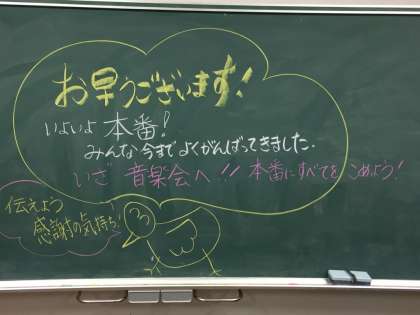 お早うございます!
いよいよ 本番!
みんな今までよくがんばってきました.
いざ 音楽会へ!! 本番にすべてを こめよう!
伝えよう
感謝の気持ち!